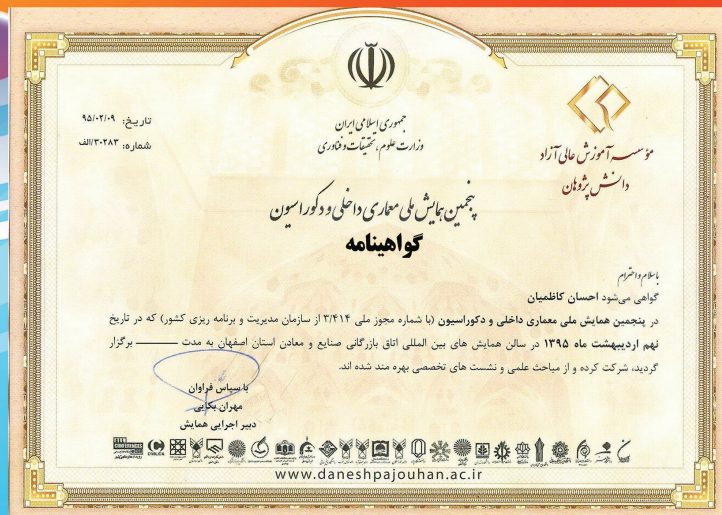 تاریخ: ۹۵/۰۲/۰۹
شماره: ۳۰۲۸۳/الف
جمهوری اسلامی ایران
وزارت علوم، تحقیقات و فناوری
مؤسسه آموزش عالی آزاد
دانش پژوهان
پنجمین همایش ملی معماری داخلی و دکوراسیون
گواهینامه
باسلام واحترام
گواهی می‌شود احسان کاظمیان
در پنجمین همایش ملی معماری داخلی و دکوراسیون (با شماره مجوز ملی ۳/۴۱۴ از سازمان مدیریت و برنامه ریزی کشور) که در تاریخ
نهم اردیبهشت ماه ۱۳۹۵ در سالن همایش های بین المللی اتاق بازرگانی صنایع و معادن استان اصفهان به مدت ——— برگزار
گردید، شرکت کرده و از مباحث علمی و نشست های تخصصی بهره مند شده اند.
با سپاس فراوان
مهران بکایی
دبیر اجرایی همایش
CIVILICA
www.daneshpajouhan.ac.ir